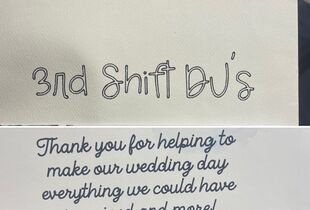 3rd Shift DJ's
Thank you for helping to
make our wedding day
everything we could have
and more!